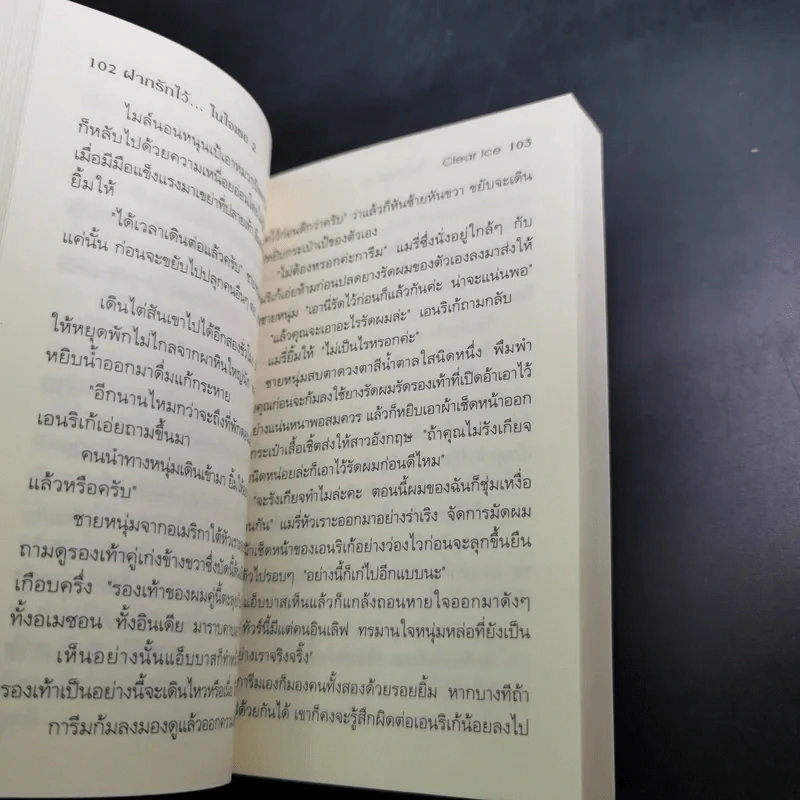 102 ฝากรักไว้... ในใจเธอ 2
ไมล์นอนหนุนเป้เอาหมวก
ก็หลับไปด้วยความเหนื่อยอ่อน
เมื่อมีมือแข็งแรงมาเขย่าที่ปลายเท้า
ยิ้มให้
"ได้เวลาเดินต่อแล้วครับ"
แค่นั้น ก่อนจะขยับไปปลุกคนอื่นๆ
เดินไต่สันเขาไปได้อีกสองชั่วโมง
ให้หยุดพักไม่ไกลจากผาหินใหญ่
หยิบน้ำออกมาดื่มแก้กระหาย
"อีกนานไหมกว่าจะถึงที่พัก
เอนริเก้เอ่ยถามขึ้นมา
คนนำทางหนุ่มเดินเข้ามา ยิ้ม
แล้วหรือครับ"
ชายหนุ่มจากอเมริกาใต้หัวเราะ
ถามดูรองเท้าคู่เก่งข้างขวาซึ่งบัดนี้
เกือบครึ่ง "รองเท้าของผมคู่นี้ตะลุย
ทั้งอเมซอน ทั้งอินเดีย มาราบคาบ
เห็นอย่างนั้นแอ็บบาสก็
รองเท้าเป็นอย่างนี้จะเดินไหวหรือ
การีมก้มลงมองดูแล้วออกความ
Clear Ice 103
ไว้ก่อนดีกว่าครับ" ว่าแล้วก็หันซ้ายหันขวา ขยับจะเดิน
หยิบกระเป๋าเป้ของตัวเอง
"ไม่ต้องหรอกค่ะการีม" แมรี่ซึ่งนั่งอยู่ใกล้ๆ กับ
เอนริเก้เอ่ยห้ามก่อนปลดยางรัดผมของตัวเองลงมาส่งให้
ชายหนุ่ม "เอานี่รัดไว้ก่อนก็แล้วกันค่ะ น่าจะแน่นพอ"
"แล้วคุณจะเอาอะไรรัดผมล่ะ" เอนริเก้ถามกลับ
แมรี่ยิ้มให้ "ไม่เป็นไรหรอกค่ะ"
ชายหนุ่มสบตาดวงตาสีน้ำตาลใสนิดหนึ่ง พึมพำ
ขอบคุณก่อนจะก้มลงใช้ยางรัดผมรัดรองเท้าที่เปิดอ้าเอาไว้
อย่างแน่นหนาพอสมควร แล้วก็หยิบเอาผ้าเช็ดหน้าออก
กระเป๋าเสื้อเชิ้ตส่งให้สาวอังกฤษ "ถ้าคุณไม่รังเกียจ
นิดหน่อยล่ะก็เอาไว้รัดผมก่อนดีไหม"
"จะรังเกียจทำไมล่ะคะ ตอนนี้ผมของฉันก็ชุ่มเหงื่อ
กัน" แมรี่หัวเราะออกมาอย่างร่าเริง จัดการมัดผม
ผ้าเช็ดหน้าของเอนริเก้อย่างว่องไวก่อนจะลุกขึ้นยืน
ตัวไปรอบๆ "อย่างนี้ก็เก๋ไปอีกแบบนะ"
แอ็บบาสเห็นแล้วก็แกล้งถอนหายใจออกมาดังๆ
ทัวร์นี้มีแต่คนอินเลิฟ ทรมานใจหนุ่มหล่อที่ยังเป็น
อย่างเราจริงจริ๊ง"
การีมเองก็มองคนทั้งสองด้วยรอยยิ้ม หากบางทีถ้า
ด้วยกันได้ เขาก็คงจะรู้สึกผิดต่อเอนริเก้น้อยลงไป